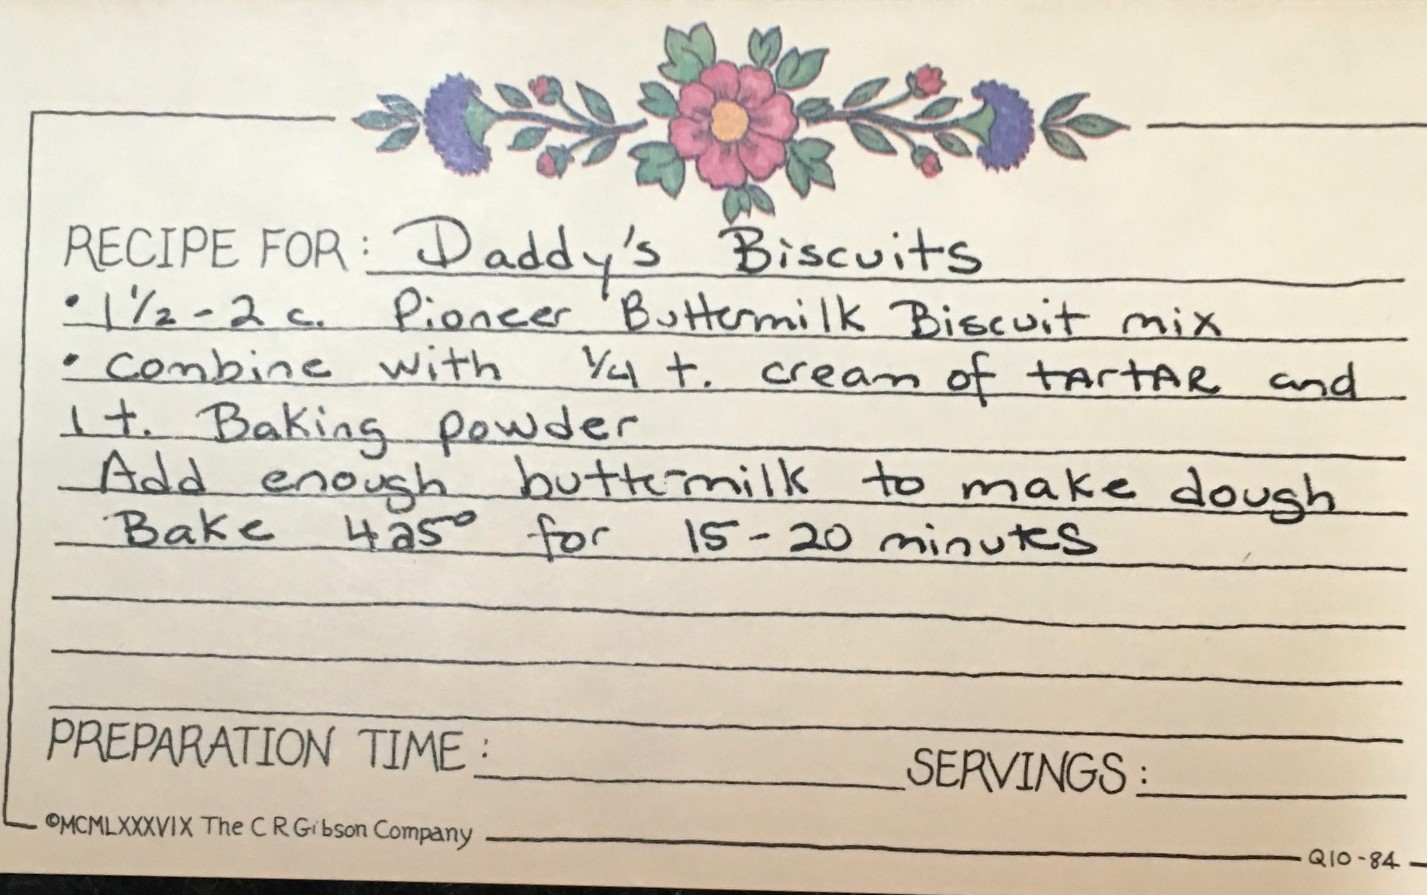 RECIPE FOR: Daddy's Biscuits
• 1 1/2 - 2 c. Pioneer Buttermilk Biscuit mix
• combine with 1/4 t. cream of tArtAR and
1 t. Baking powder
Add enough buttermilk to make dough
Bake 425° for 15 - 20 minutes
PREPARATION TIME: SERVINGS:
©MCMLXXXVIX The C R Gibson Company Q10-84